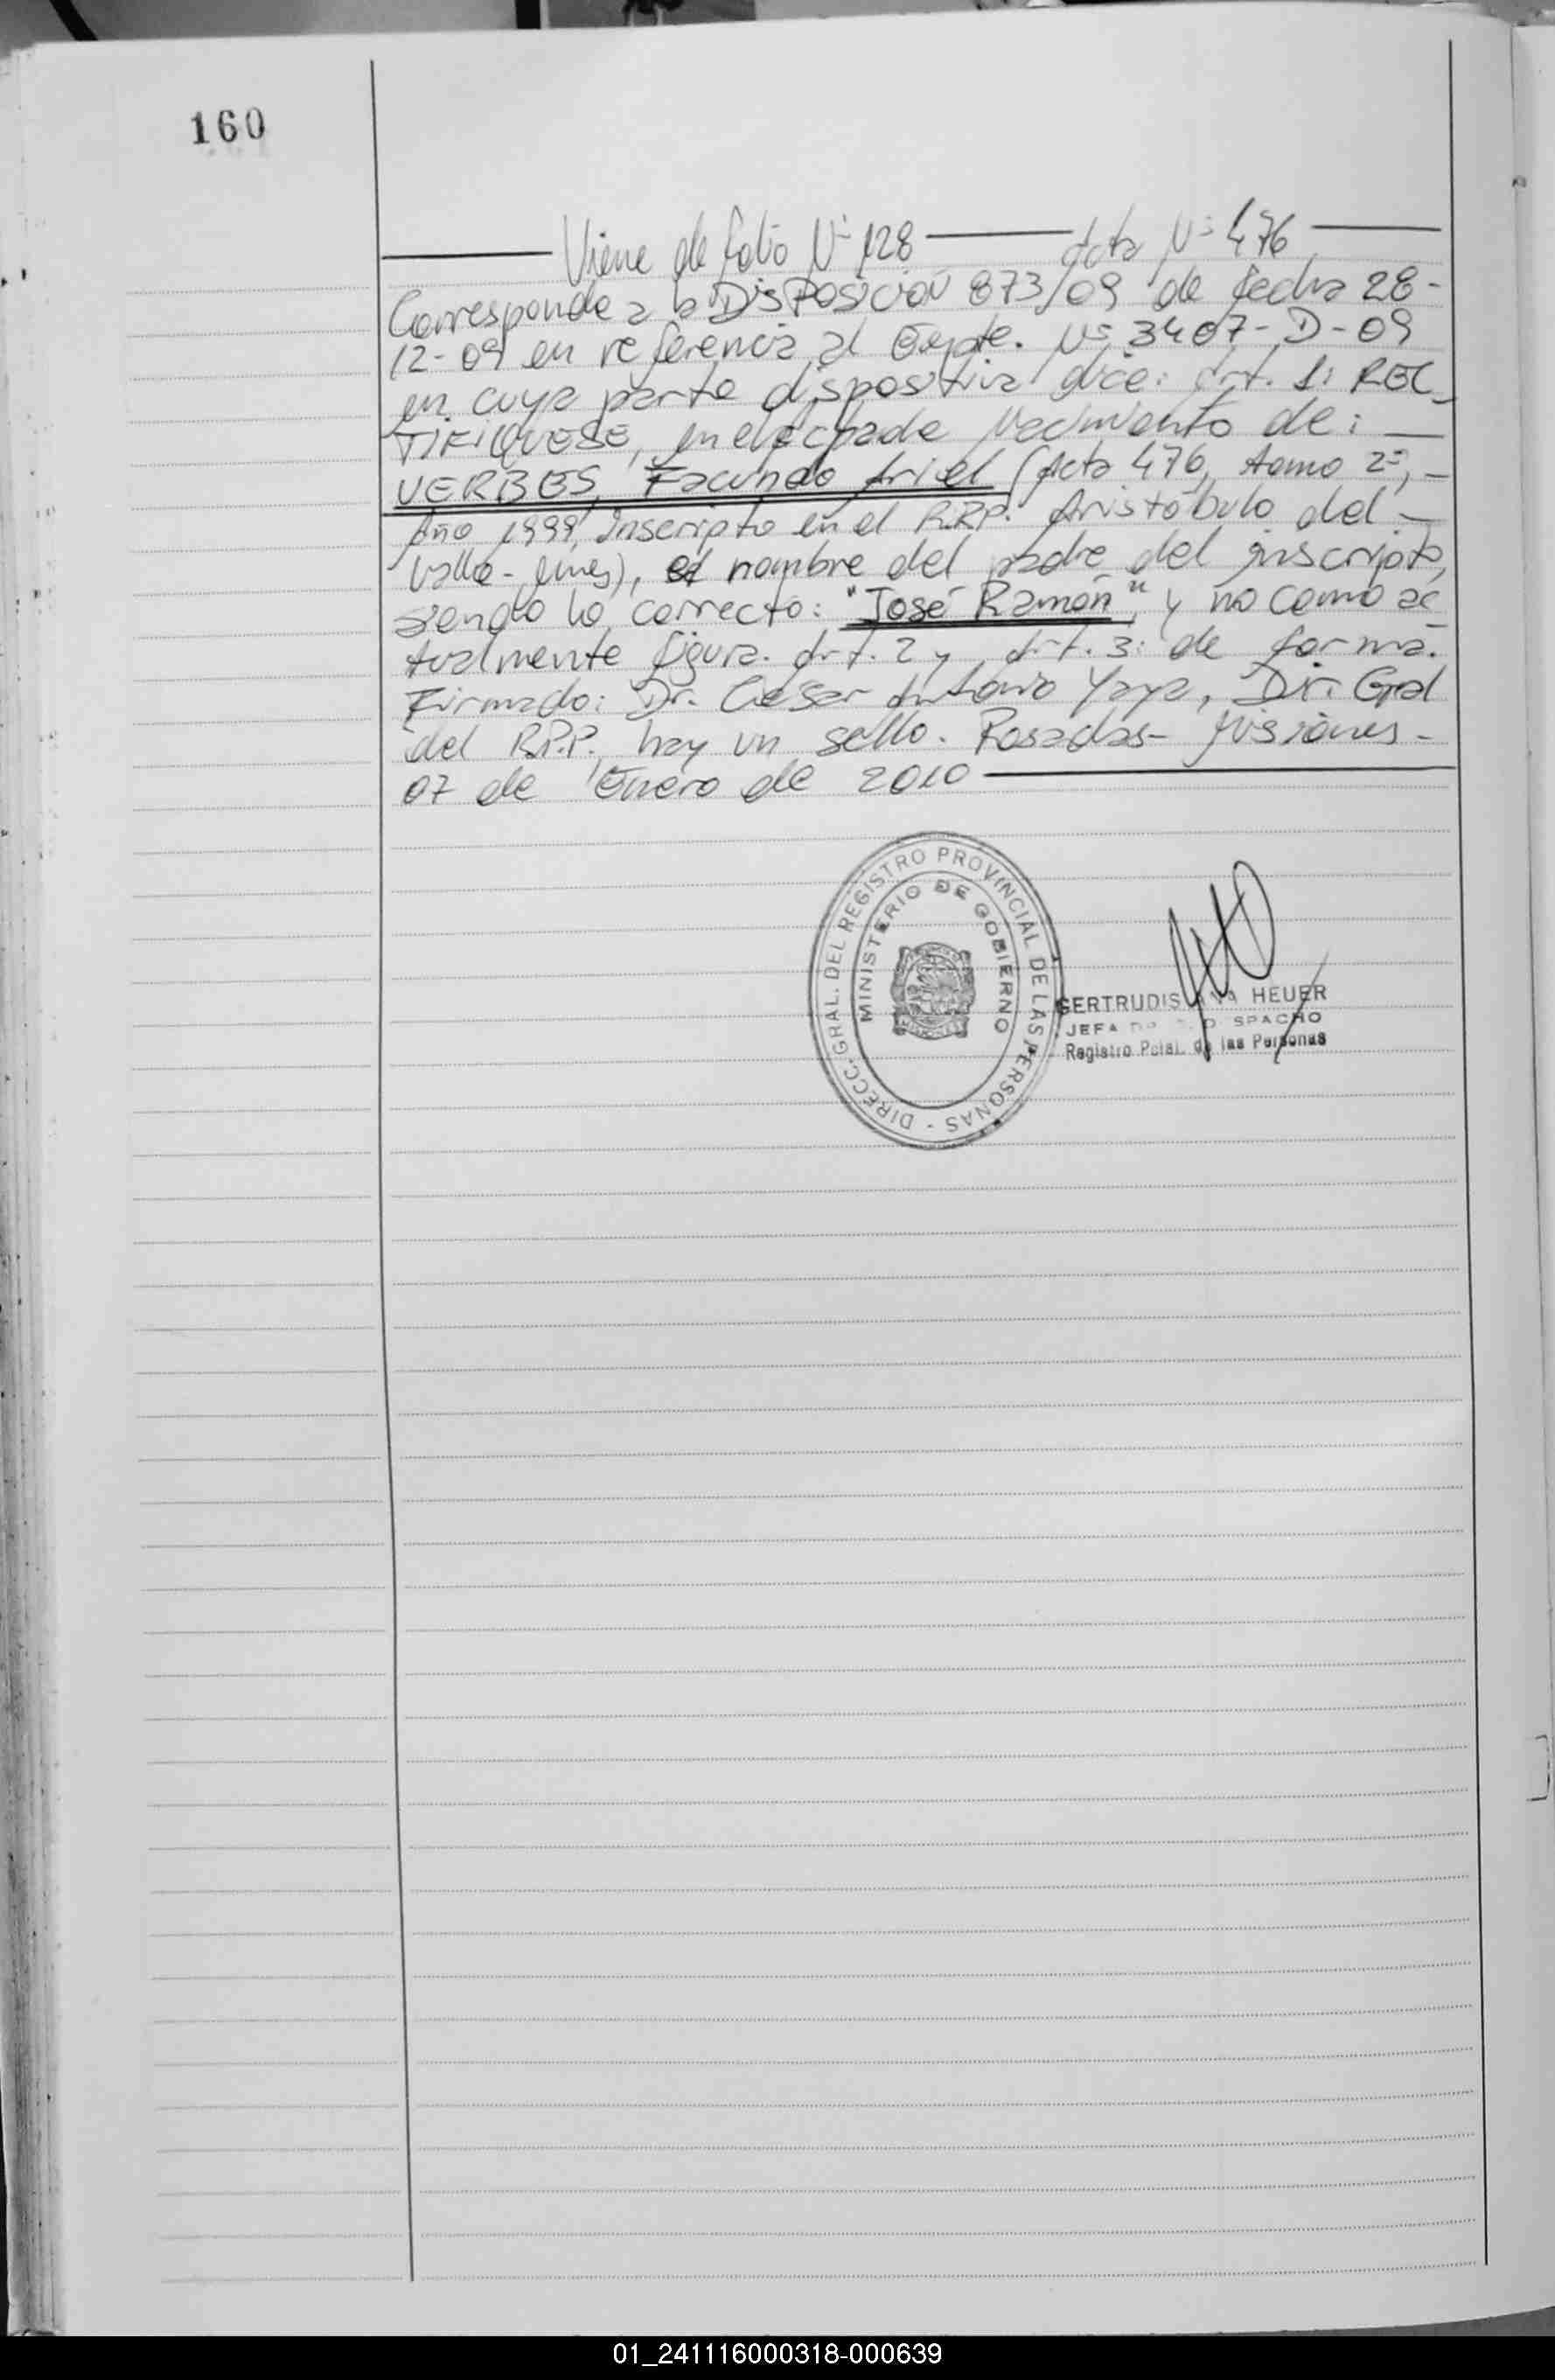 160
Viene de folio Nº 128 Acta Nº 476
Corresponde a la DISPOSICIÓN 873/09 de fecha 28-
12-09 en referencia al Expte. Nº 3407-D-09
en cuya parte dispositiva dice: Art. 1: REC_
TIFIQUESE, en el acta de Nacimiento de: _
VERBES, Facundo Ariel (Acta 476, tomo 2º, -
Año 1999, Inscripto en el R.P.P. Aristóbulo del -
Valle - Mnes), el nombre del padre del inscripto,
siendo lo correcto: "José Ramón", y no como ac
tualmente figura. Art. 2 y Art. 3: de forma.
Firmado: Dr. Cesar Antonio Yaya, Dir. Gral
del R.P.P. hay un sello. Posadas - Misiones -
07 de Enero de 2010
DIRECC. GRAL. DEL REGISTRO PROVINCIAL DE LAS PERSONAS -
MINISTERIO DE GOBIERNO
GERTRUDIS HEUER
JEFA
Registro Pcial. de las Personas
01_241116000318-000639